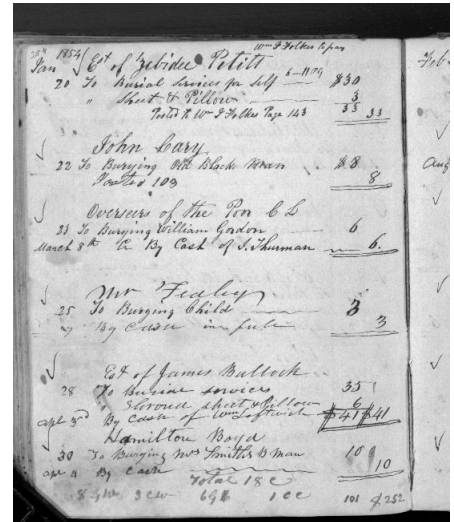 Wm J Folkes to pay
Jan 1854 Est of Zebidee Petitt
20 To Burial Services for Self $30
" Sheet & Pillow 3
Posted to Wm J Folkes Page 143 33 33
John Cary
22 To Burying Old Black Man $8
Posted 109 8
Overseers of the Poor C L
23 To Burying William Gordon 6
March 8th Cr By Cash of J. Thurman 6.
Mr Fedley
25 To Burying Child 3
By Cash in full 3
Est of James Bullock
28 To Burial services 35
" Shroud sheet & Pillow 6
apl 3rd By Cash of Wm Leftwich $41 $41
Hamilton Boyd
30 To Burying Mrs Smiths B man 10
apl 11 By Cash 10
Total 18 C
8 3 CW 1 CC 101 $252
Feb
Aug